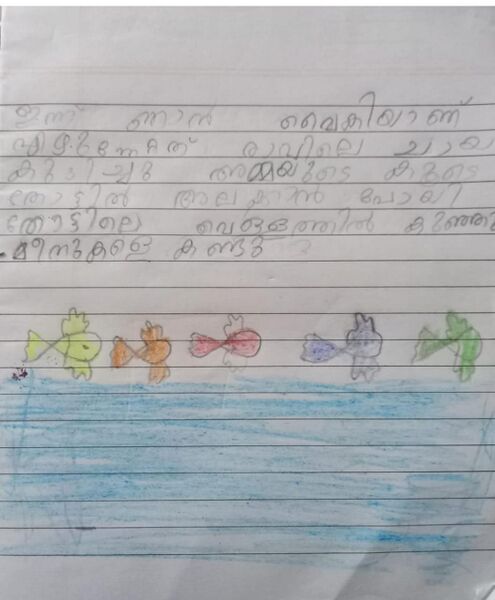 ഇന്ന് ഞാൻ വൈകിയാണ്
എഴുന്നേറ്റത് രാവിലെ ചായ
കുടിച്ചു അമ്മയുടെ കൂടെ
തോട്ടിൽ അലക്കാൻ പോയി
തോട്ടിലെ വെള്ളത്തിൽ കുഞ്ഞു
മീനുകളെ കണ്ടു